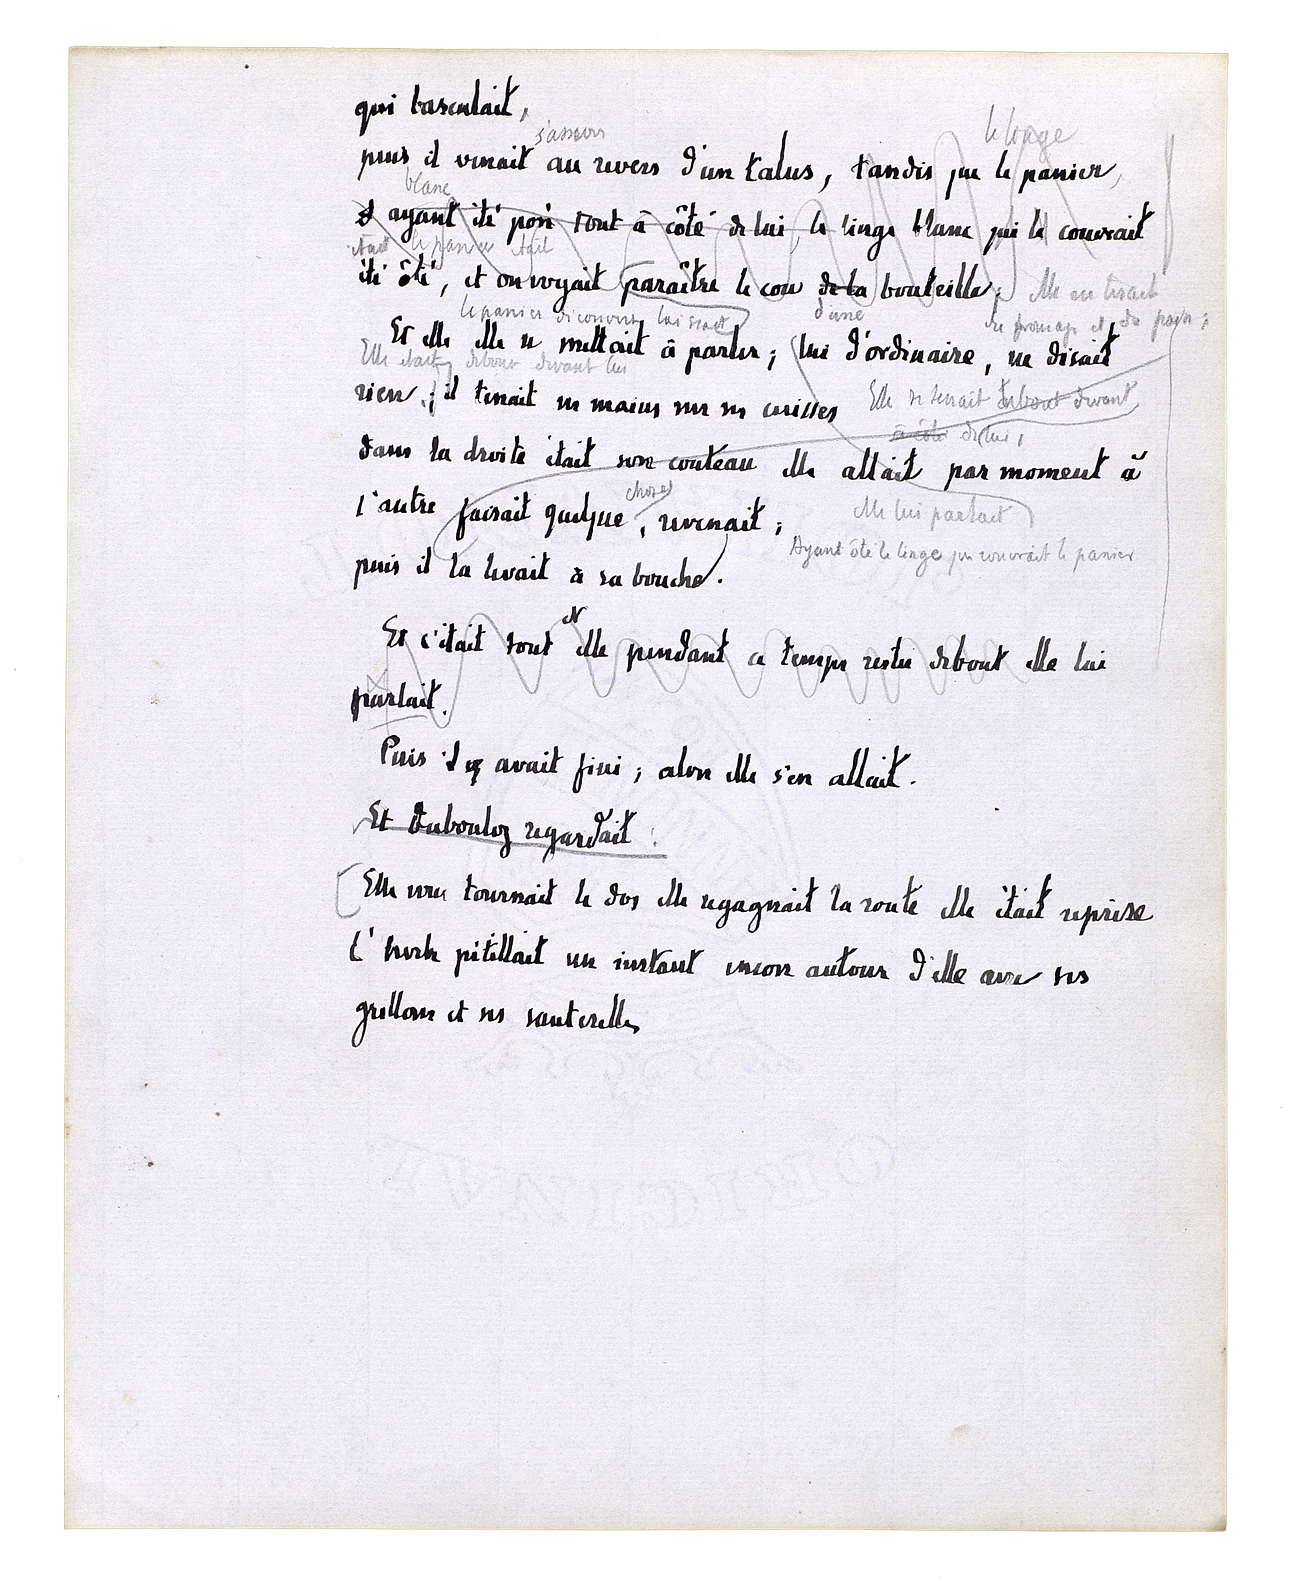 qui basculait,
s'asseoir
le linge
puis il venait au revers d'un talus, tandis que le panier,
blanc
ayant été posé tout à côté de lui, le linge blanc qui le couvrait
était le panier était
été ôté, et on voyait paraître le cou de la bouteille; Elle en tirait
le panier découvert laissait d'une du fromage et du pain;
Et elle elle se mettait à parler; lui d'ordinaire, ne disait
Elle était debout devant lui
rien; il tenait ses mains sur ses cuisses Elle se tenait debout devant
à côté de lui,
dans la droite était son couteau elle allait par moment à
choses
l'autre faisait quelque, revenait; elle lui parlait
Ayant ôté le linge qui couvrait le panier
puis il la levait à sa bouche.
et
Et c'était tout elle pendant ce temps restée debout elle lui
parlait.
Puis il y avait fini; alors elle s'en allait.
Et Tubouloz regardait:
Elle vous tournait le dos elle regagnait la route elle était reprise
L'herbe pétillait un instant encore autour d'elle avec ses
grillons et ses sauterelles